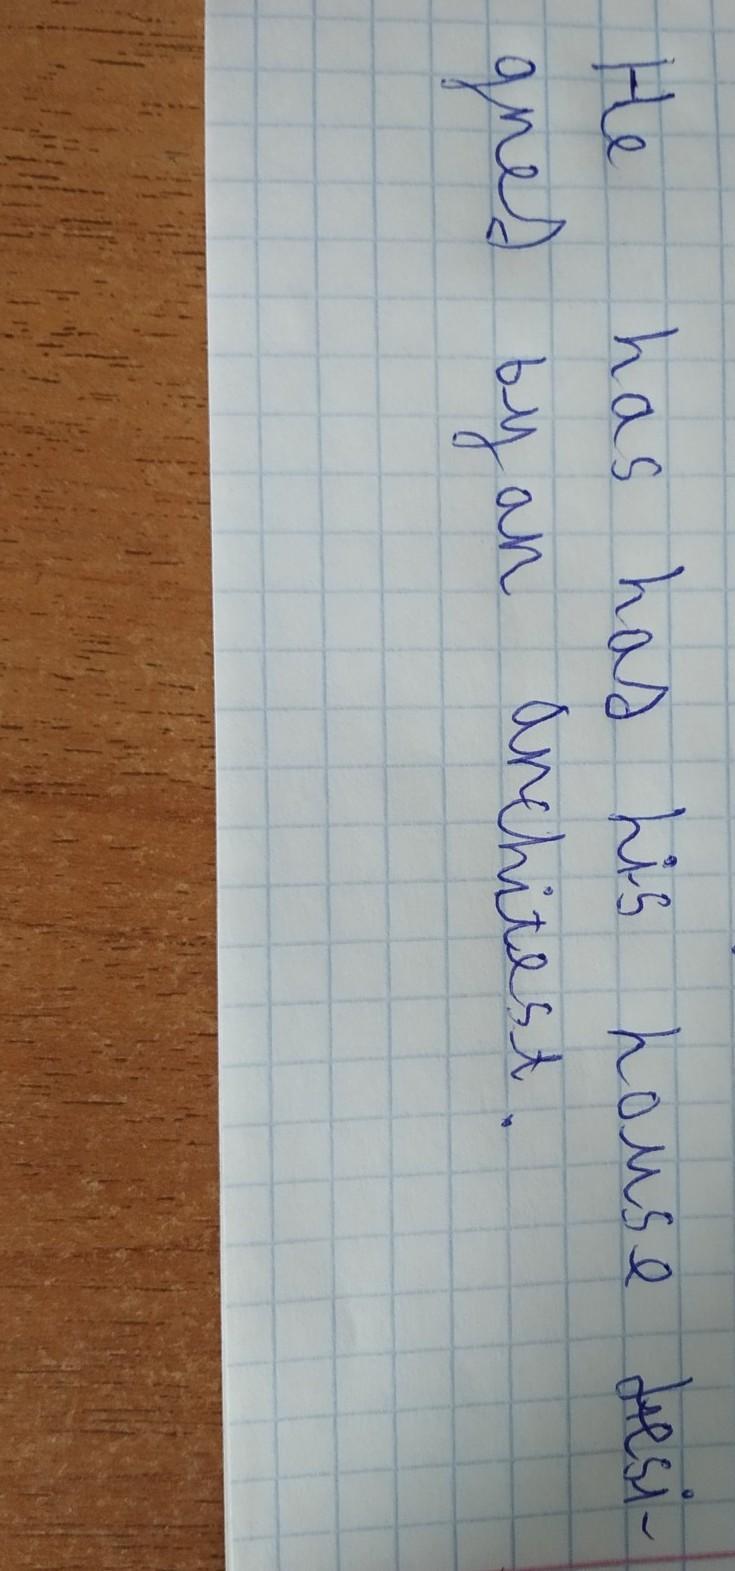 He has had his house desi-
gned by an architest.